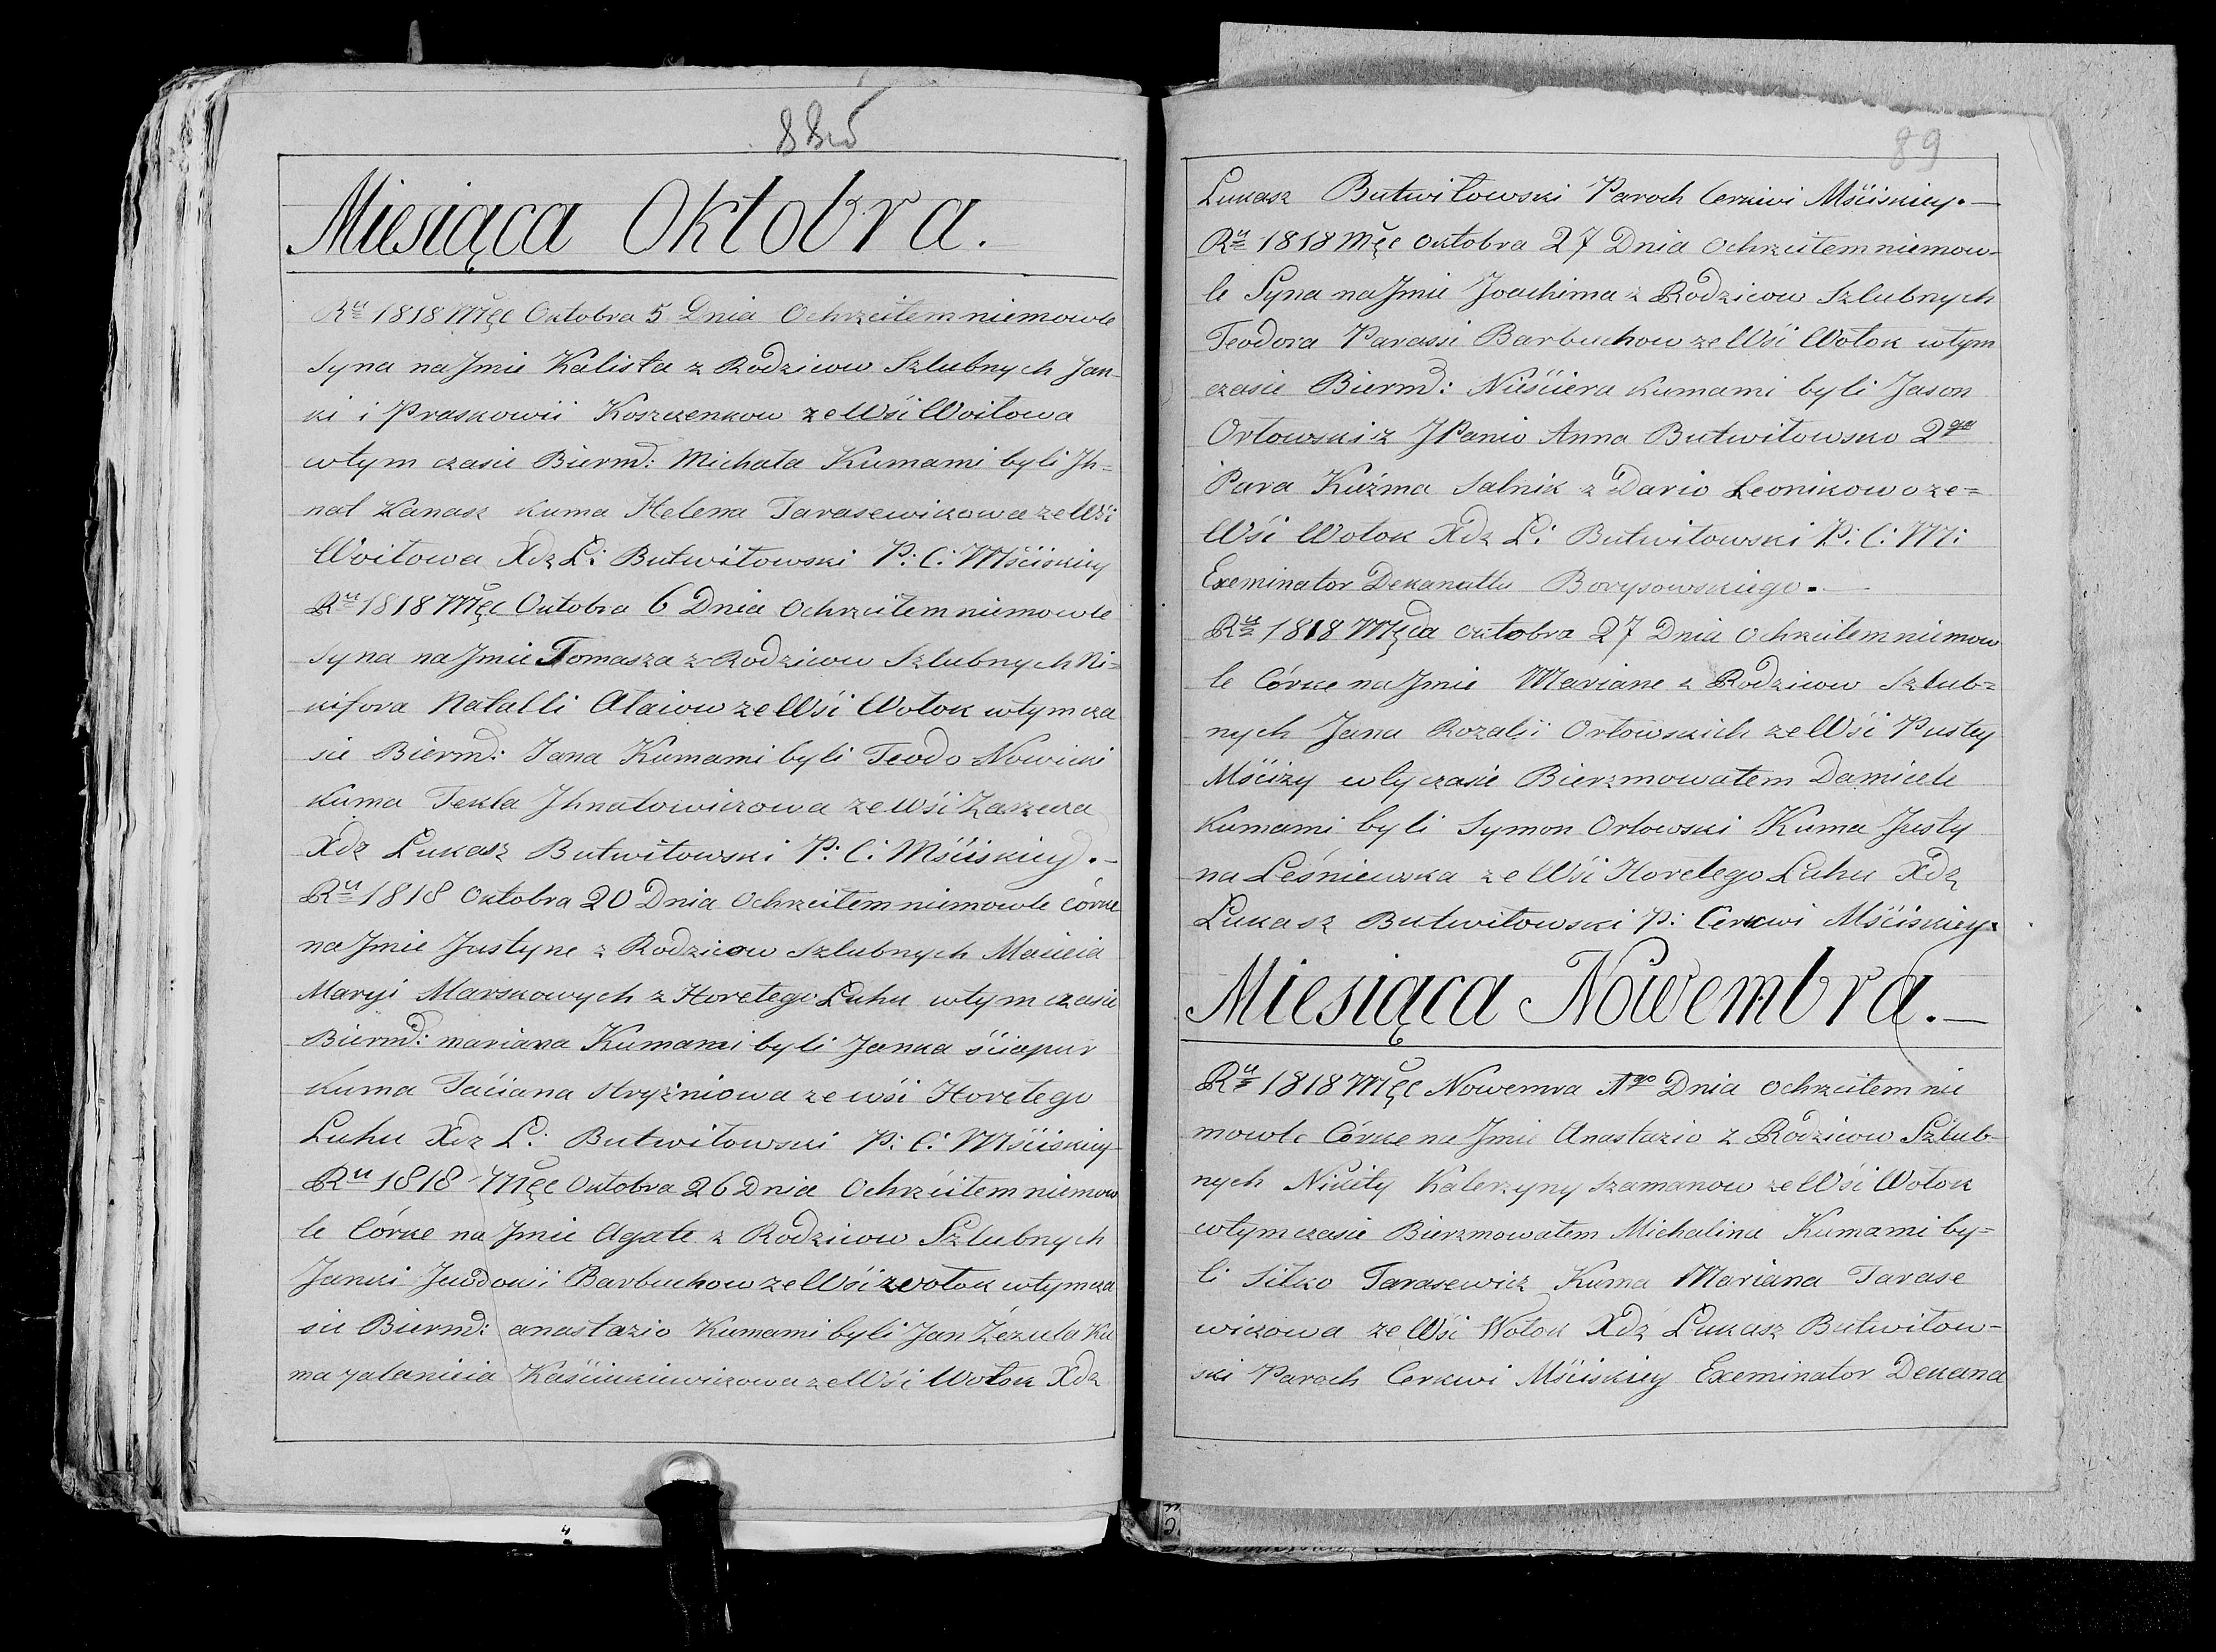 88 об
Miesiąca Oktobra.
Ru 1818 Mcę Oktobra 5 Dnia Ochrzciłem niemowle
Syna na Jmie Kalista z Rodzicow Szlubnych Jan-
ki i Praskowii Koszczenkow ze Wśi Woiłowa
wtym czasie Bierm: Michała Kumami byli Jh=
nat Kanasz kuma Helena Tarasewiczowa ze Wśi
Woiłowa Xdz Ł: Butwiłowski P: C: Mśćiskiey
Ru 1818 Mcę Oktobra 6 Dnia Ochrzciłem niemowle
Syna na Jmie Tomasza z Rodzicow Szlubnych Ni=
kifora Natalli Ałaiow ze Wśi Wołok wtym cza
sie Bierm: Jana Kumami byli Teodo Nowicki
Kuma Tekla Jhnatowiczowa ze wśi Zaszcza
Xdz Łukasz Butwiłowski P: C: Mśćiskiey.-
Ru 1818 Oktobra 20 Dnia Ochrzciłem niemowle córke
na Jmie Justyne z Rodzicow Szlubnych Macieia
Maryi Marskowych z Horełego Łuhu wtym czasie
Bierm: mariana Kumami byli Janka śćiapur
Kuma Taćiana Stryżniowa ze wśi Horełego
Łuhu Xdz Ł: Butwiłowski P: C: Mśćiskiey-
Ru 1818 Mcę Oktobra 26 Dnia Ochrzciłem niemow
le Córke na Jmie Agate z Rodzicow Szlubnych
Janki Jewdokii Barbuchow ze Wśi wołok wtym cza
sie Bierm: anastazio Kumami byli Jan Zezula Ku
ma Kaśćiukiewiczowa ze Wśi Wołok Xdz
89
Łukasz Butwiłowski Paroch Cerkwi Mśćiskiey.-
Ru 1818 Mcę Oktobra 27 Dnia Ochrzciłem niemow-
le Syna na Jmie Joachima z Rodzicow Szlubnych
Teodora Parasii Barbuchow ze Wśi Wołok wtym
czasie Bierm: Nieśćiera kumami byli Jason
Orłowski z JPanio Anna Butwiłowsko 2ga
Para Kuźma Salnik z Dario Leonikowo ze=
Wśi Wołok Xdz Ł: Butwiłowski P: C: M:
Exeminator Dekanattu Borysowskiego.-
Ru 1818 Mcęda Oktobra 27 Dnia Ochrzciłem niemow
le Córke na Jmie Mariane z Rodzicow Szlub=
nych Jana Rozalii Orłowskich ze Wśi Pustey
Mśćizy wty czasie Bierzmowałem Damicele
Kumami byli Symon Orłowski Kuma Justy
na Leśniewska ze Wśi Horełego Łuhu Xdz
Łukasz Butwiłowski P: Cerkwi Mśćiskiey.
Miesiąca Nowembra.-
Ru 1818 Mcę Nowemra 1go Dnia ochrzciłem nie
mowle Córke na Jmie Anastazio z Rodzicow Szlub-
nych Nikity Katerzyny Szamanow ze Wśi Wołok
wtym czasie Bierzmowałem Michalina Kumami by=
li Siłko Tarasewicz Kuma Mariana Tarase
wiczowa ze Wśi Wołok Xdz Łukasz Butwiłow-
ski Paroch Cerkwi Mśćiskiey Exeminator Dekana